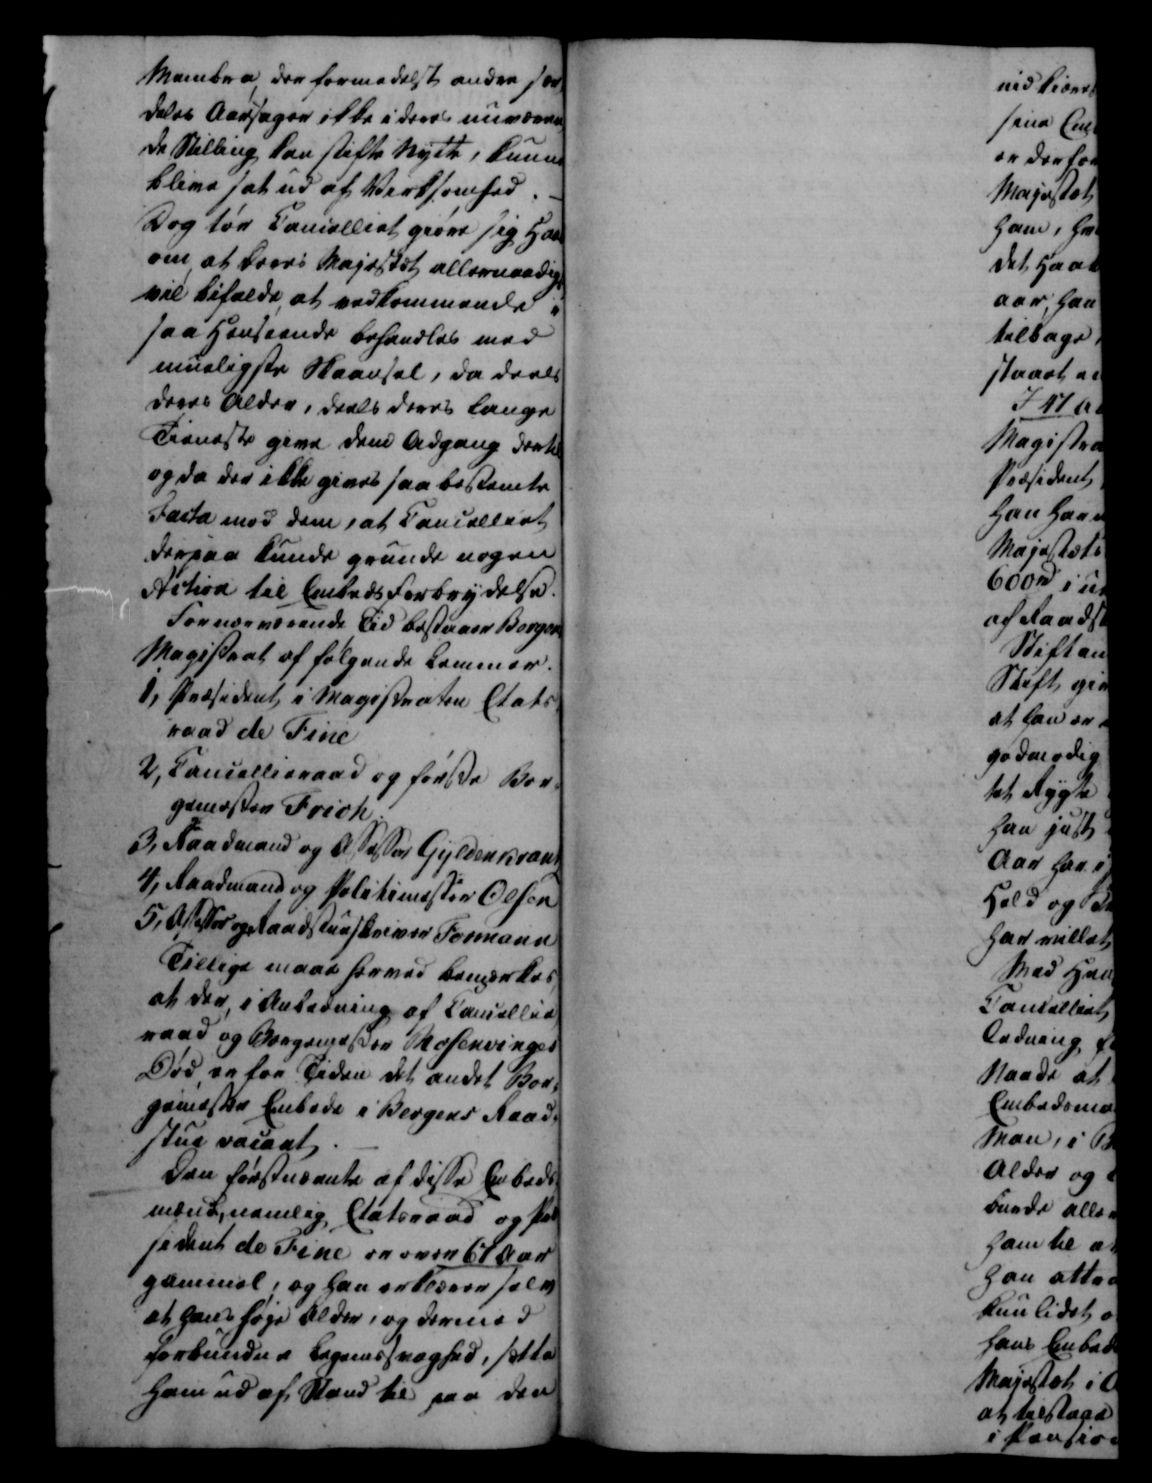 Membra, der formedelst andre sær
deles Aarsager ikke i deres nuværen
de Stilling kan stifte Nytte, kunne
blive sat ud af Virksomhed. —
Dog tør Cancelliet giøre sig Haab
om, at Deres Majestæt allernaadigst
vil bifalde, at vedkommende i
saa Henseende behandles med
mueligste Skaansel, da deels
deres Alder, deels deres lange
Tieneste give dem Adgang dertil
og da der ikke gives saa bestemte
Facta mod dem, at Cancelliet
derpaa kunde grunde nogen
Action til Embedsforbrydelse.
For nærværende Tid bestaaer Bergens
Magistrat af følgende Lemmer.
1, Præsident i Magistraten Etats
raad de Fine
2, Cancellieraad og første Bor-
gemester Frich.
3, Raadmand og Assessor Gyldenkrantz
4, Raadmand og Politimester Olsen
5, Assessor og Raadstueskriver Formann
Tillige maae herved bemærkes,
at der, i Anledning af Cancellie
raad og Borgemester Rosenvinges
Død, er for Tiden det andet Bor-
gemester Embede i Bergens Raad-
stue vacant. —
Den førstnævnte af disse Embeds
mænd, nemlig Etatsraad og Præ
sident de Fine er over 67 Aar
gammel, og han erklærer selv
at hans høje Alder, og dermed
forbundne Legemssvaghed, sætte
ham ud af Stand til paa den
nidkiær
sine Em
er derfor
Majestæt
ham, hv
det Haab
aar, han
tilbage,
staaet en
I 47 Aa
Magistra
Præsident
han har
Majestæts
600 rd i
af Raadst
Stiftam
Stift giv
at han er
godmodig
tet Rygte
han just
Aar har i
Held og
har villet
Med Hen
Cancelliet
Ledning
Naade at
Embedsmæ
Man, i B
Alder og
burde aller
ham til at
han attra
kun lidet
hans Embed
Majestæt i
at tilstaae
i Pension